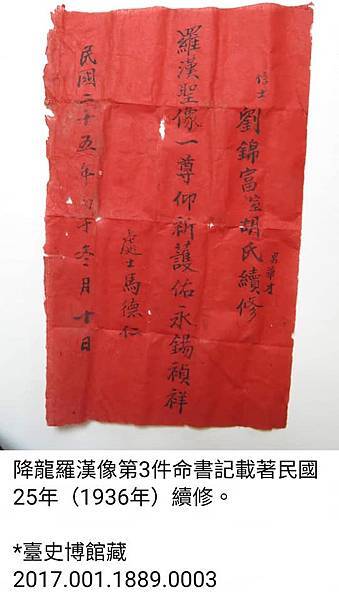 信士劉錦富室胡氏續修
男華才
羅漢聖像一尊仰祈護佑永錫禎祥
處士馬德仁
民國二十五年丙子冬月十日
降龍羅漢像第3件命書記載著民國
25年（1936年）續修。
*臺史博館藏
2017.001.1889.0003